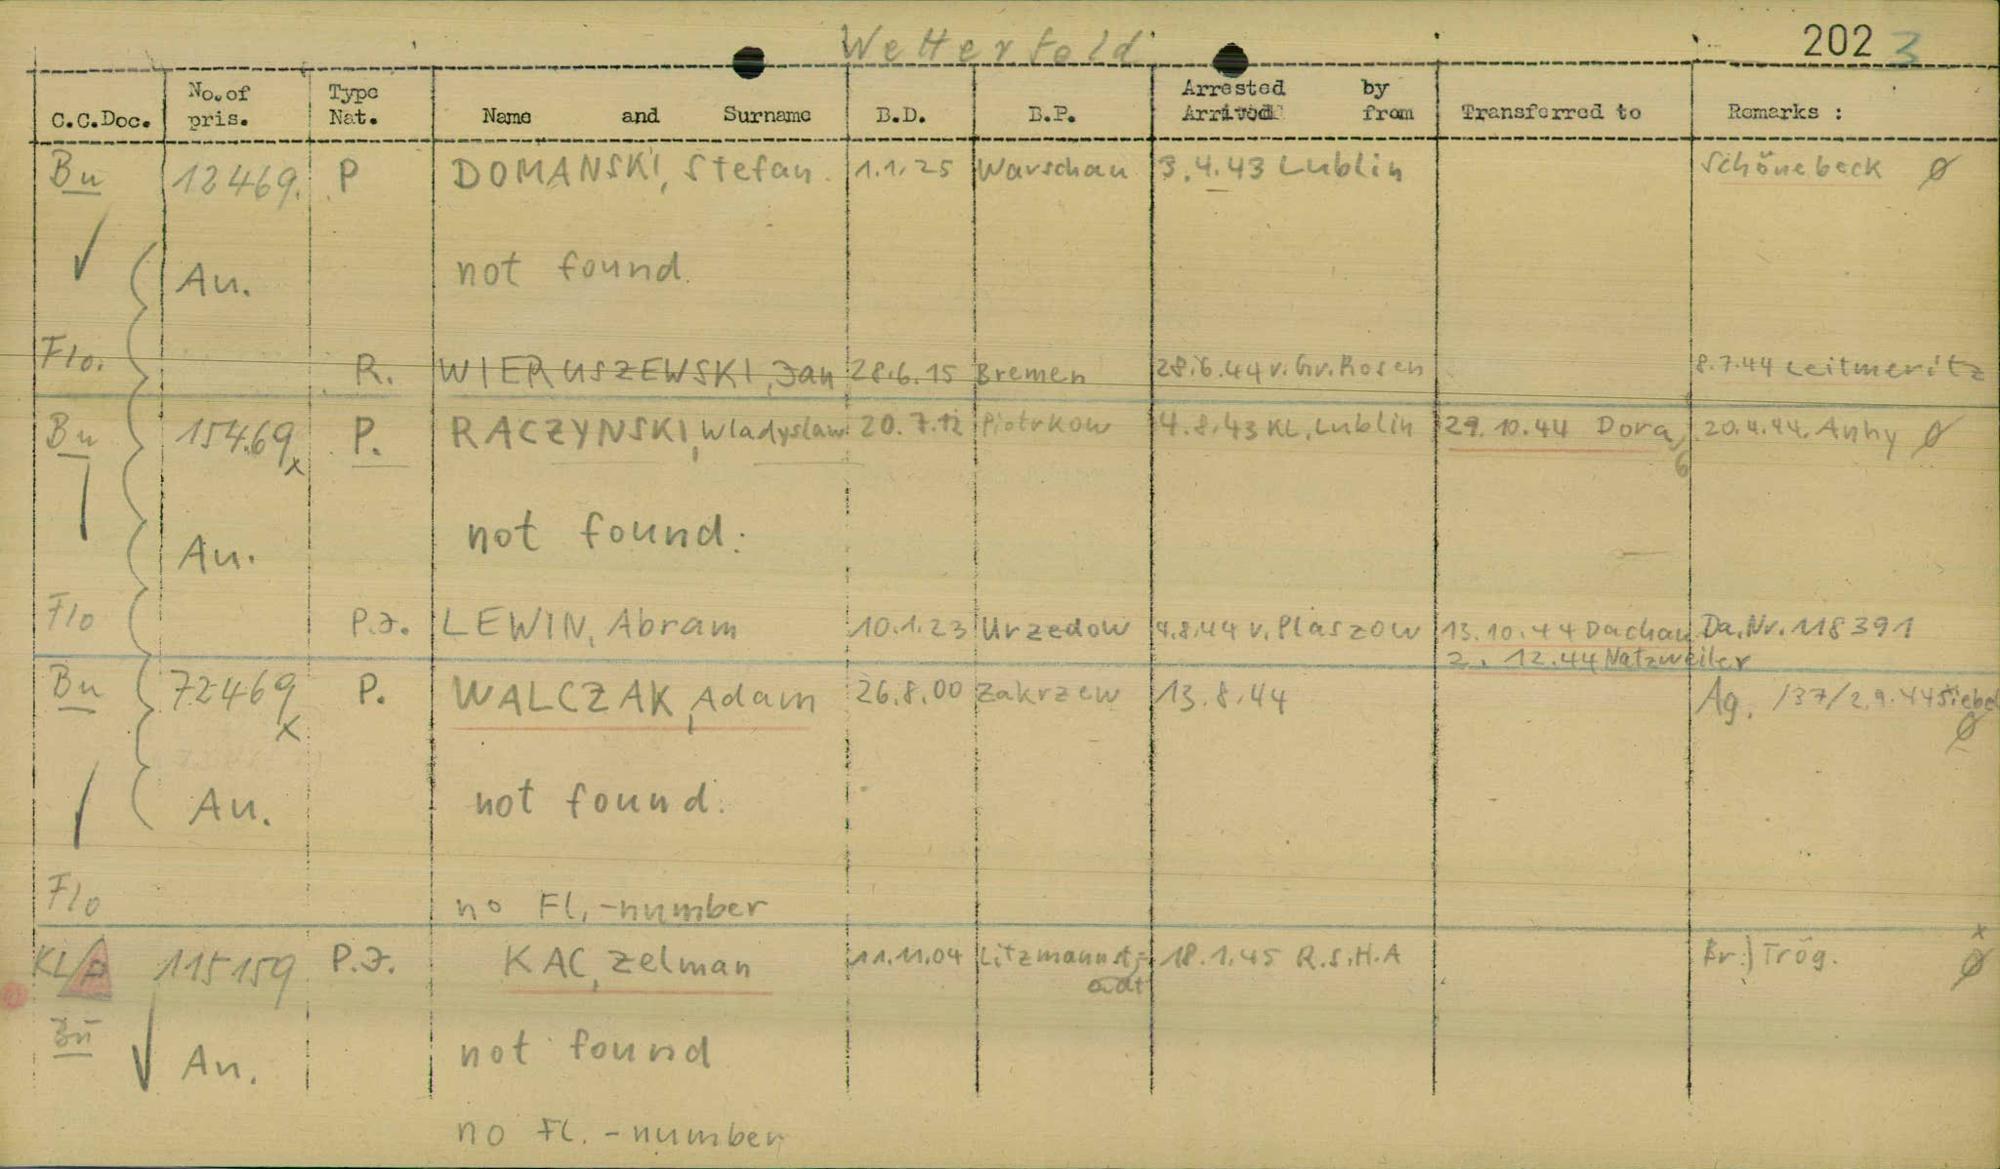 Wetterfeld
202 3
C.C.Doc. No. of pris. Type Nat. Name and Surname B.D. B.P. Arrested by Arrived from Transferred to Remarks :
Bu 12469. P DOMANSKI, Stefan. 1.1.25 Warschau 3.4.43 Lublin Schönebeck Ø
Au. not found.
Flo. R. WIERUSZEWSKI, Jan 28.6.15 Bremen 28.6.44 v. Gr. Rosen 8.7.44 Leitmeritz
Bu 15469 x P. RACZYNSKI, Wladyslaw 20.7.12 Piotrkow 4.8.43 KL. Lublin 29.10.44 Dora 20.4.44. Anhy Ø
Au. not found.
Flo P.J. LEWIN, Abram 10.1.23 Urzedow 4.8.44 v. Plaszow 13.10.44 Dachau Da. Nr. 118391
2. 12.44 Natzweiler
Bu 72469 x P. WALCZAK, Adam 26.8.00 Zakrzew 13.8.44 Ag. /37/2.9.44 Siebel Ø
Au. not found.
Flo no Fl.-number
KL/A 115159 P.J. KAC, Zelman 11.11.04 Litzmannst= 18.1.45 R.S.H.A Br.) Trög. x Ø
adt
Bu Au. not found
no Fl. -number